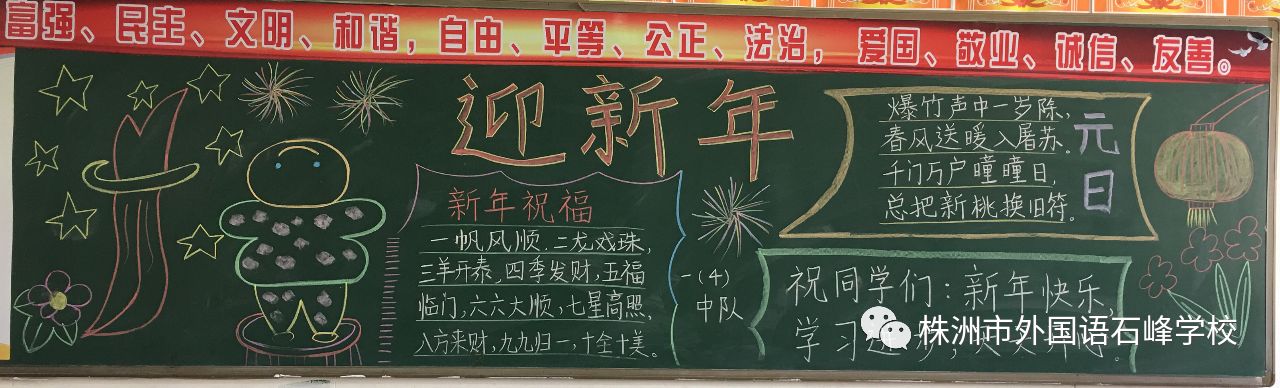 富强、民主、文明、和谐，自由、平等、公正、法治，爱国、敬业、诚信、友善。
迎新年
新年祝福
一帆风顺.二龙戏珠，
三羊开泰，四季发财，五福
临门，六六大顺，七星高照，
八方来财，九九归一，十全十美。
一(4)
中队
元日
爆竹声中一岁除，
春风送暖入屠苏。
千门万户曈曈日，
总把新桃换旧符。
祝同学们：新年快乐，
学习进步，天天开心。
株洲市外国语石峰学校